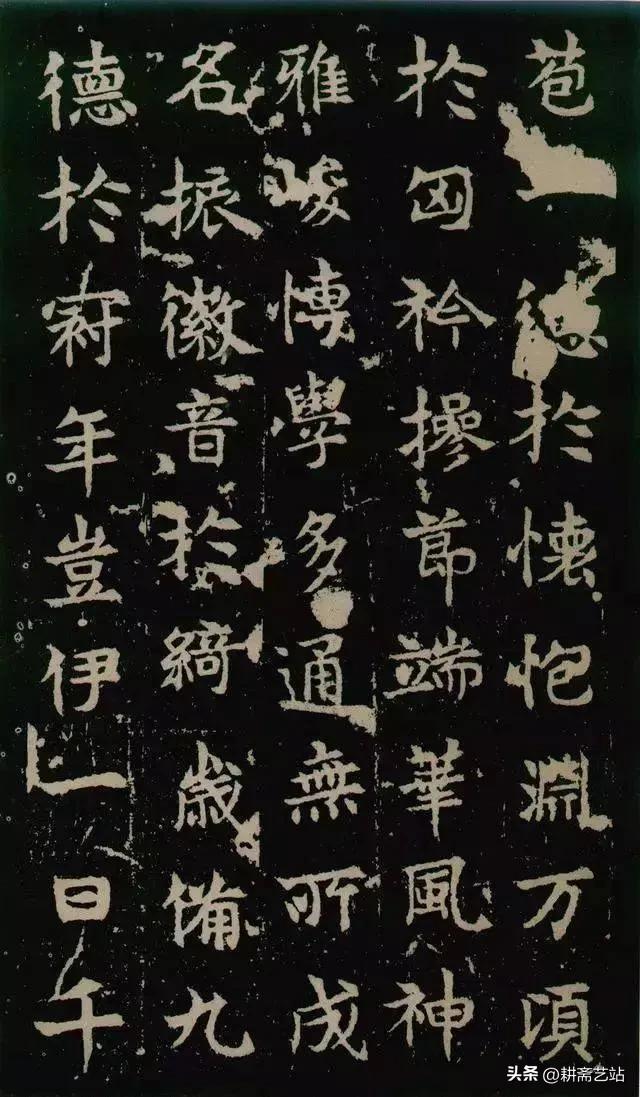 苞德於懷抱淵万頃
於匈衿操莭端華風神
雅峻博學多通無所成
名振徽音於綺歳備九
德於冠年豈伊日千
头条 @耕斋艺站